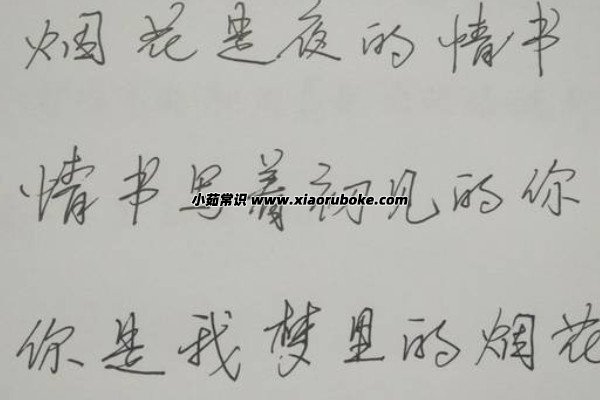 烟花是夜的情书
情书写着初见的你
小茹常识 www.xiaoruboke.com
你是我梦里的烟花